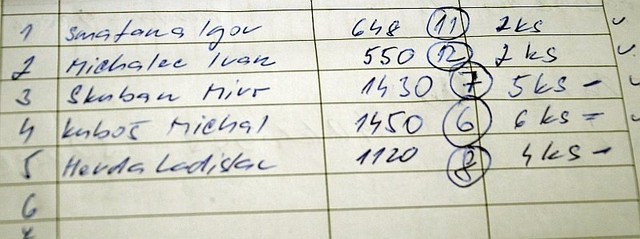 1 Smatana Igor 648 11 2ks
2 Michalec Ivan 550 12 2 ks
3 Skuban Miro 1430 7 5 ks -
4 Kuboš Michal 1450 6 6 ks =
5 Herda Ladislav 1120 8 4 ks -
6